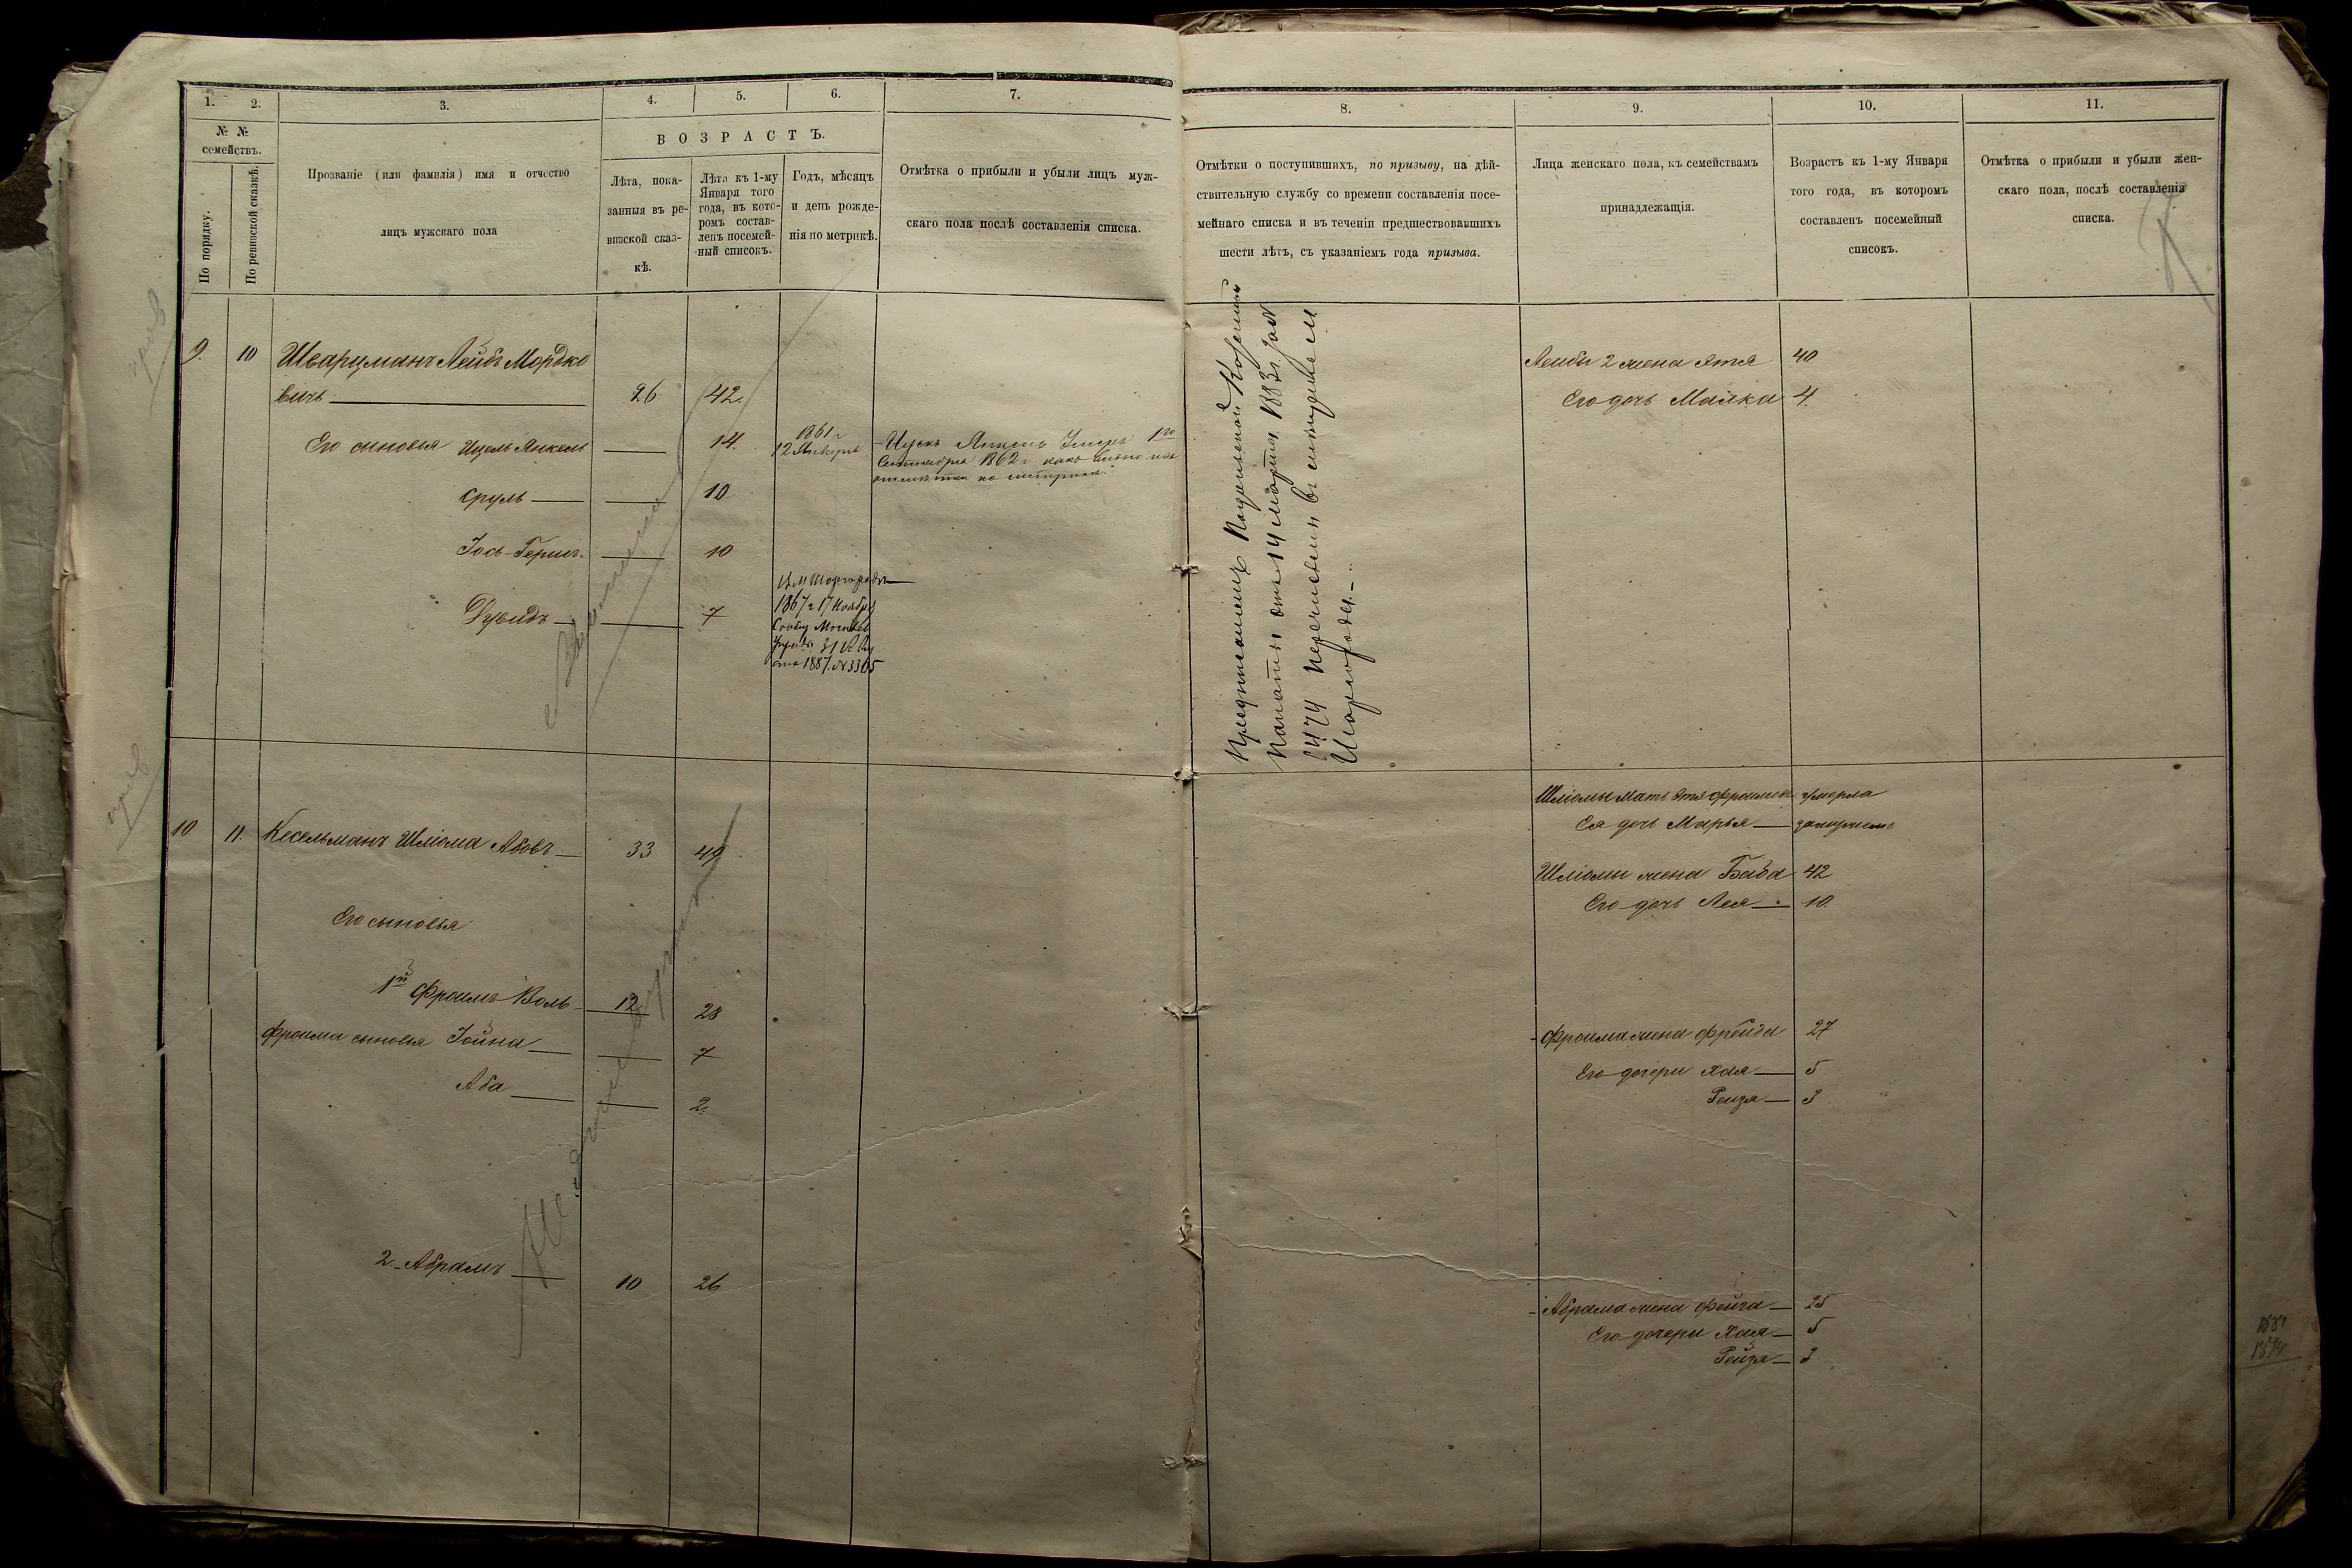 1. 2. 3. 4. 5. 6. 7.
№ №
семействъ.
По порядку.
По ревизской сказкѣ.
Прозваніе (или фамилія) имя и отчество
лицъ мужскаго пола
ВОЗРАСТЪ.
Лѣта, пока-
занныя въ ре-
визской сказ-
кѣ.
Лѣта къ 1-му
Января того
года, въ кото-
ромъ состав-
ленъ посемей-
ный списокъ.
Годъ, мѣсяцъ
и день рожде-
нія по метрикѣ.
Отмѣтка о прибыли и убыли лицъ муж-
скаго пола послѣ составленія списка.
9. 10 Шварцманъ Лейбъ Мордко
вичъ 26 42.
Его сыновья Ицель Янкель 14. 1861 г
12 Января
Ицекъ Янкель Умеръ 1го
Сентября 1862 г какъ видно изъ
отметки на метрике
Сруль 10
Іось-Гершъ 10
Дувидъ 7
И. М. Шаргородъ
1867 г 17 Ноября
1887. № 3365
10 11. Кесельманъ Шліома Абовъ 33 49
Его сыновья
1й Фроимъ Воль 12 28
Фроима сыновья Іойна 7
Аба 2
2 Абрамъ 10 26
8. 9. 10. 11.
Отмѣтки о поступившихъ, по призыву, на дѣй-
ствительную службу со времени составленія посе-
мейнаго списка и въ теченіи предшествовавшихъ
шести лѣтъ, съ указаніемъ года призыва.
Лица женскаго пола, къ семействамъ
принадлежащія.
Возрастъ къ 1-му Января
того года, въ которомъ
составленъ посемейный
списокъ.
Отмѣтка о прибыли и убыли жен-
скаго пола, послѣ составленія
списка.
Предписаніемъ Подольской Казенной
Палаты отъ 14 марта 1883 г. за №
6474 перечислены въ
Шаргорода.
Лейбы 2 жена Этя 40
Его дочь Малка 4.
Шліомы мать Этя Фроимова умерла
Ея дочь Марья замужемъ
Шліомы жена Баба 42
Его дочь Лея 10.
Фроима жена Фрейда 27
Его дочери Хая 5
Рейзя 3
Абрама жена Фейга 25
Его дочери Хая 5
Рейзя 3